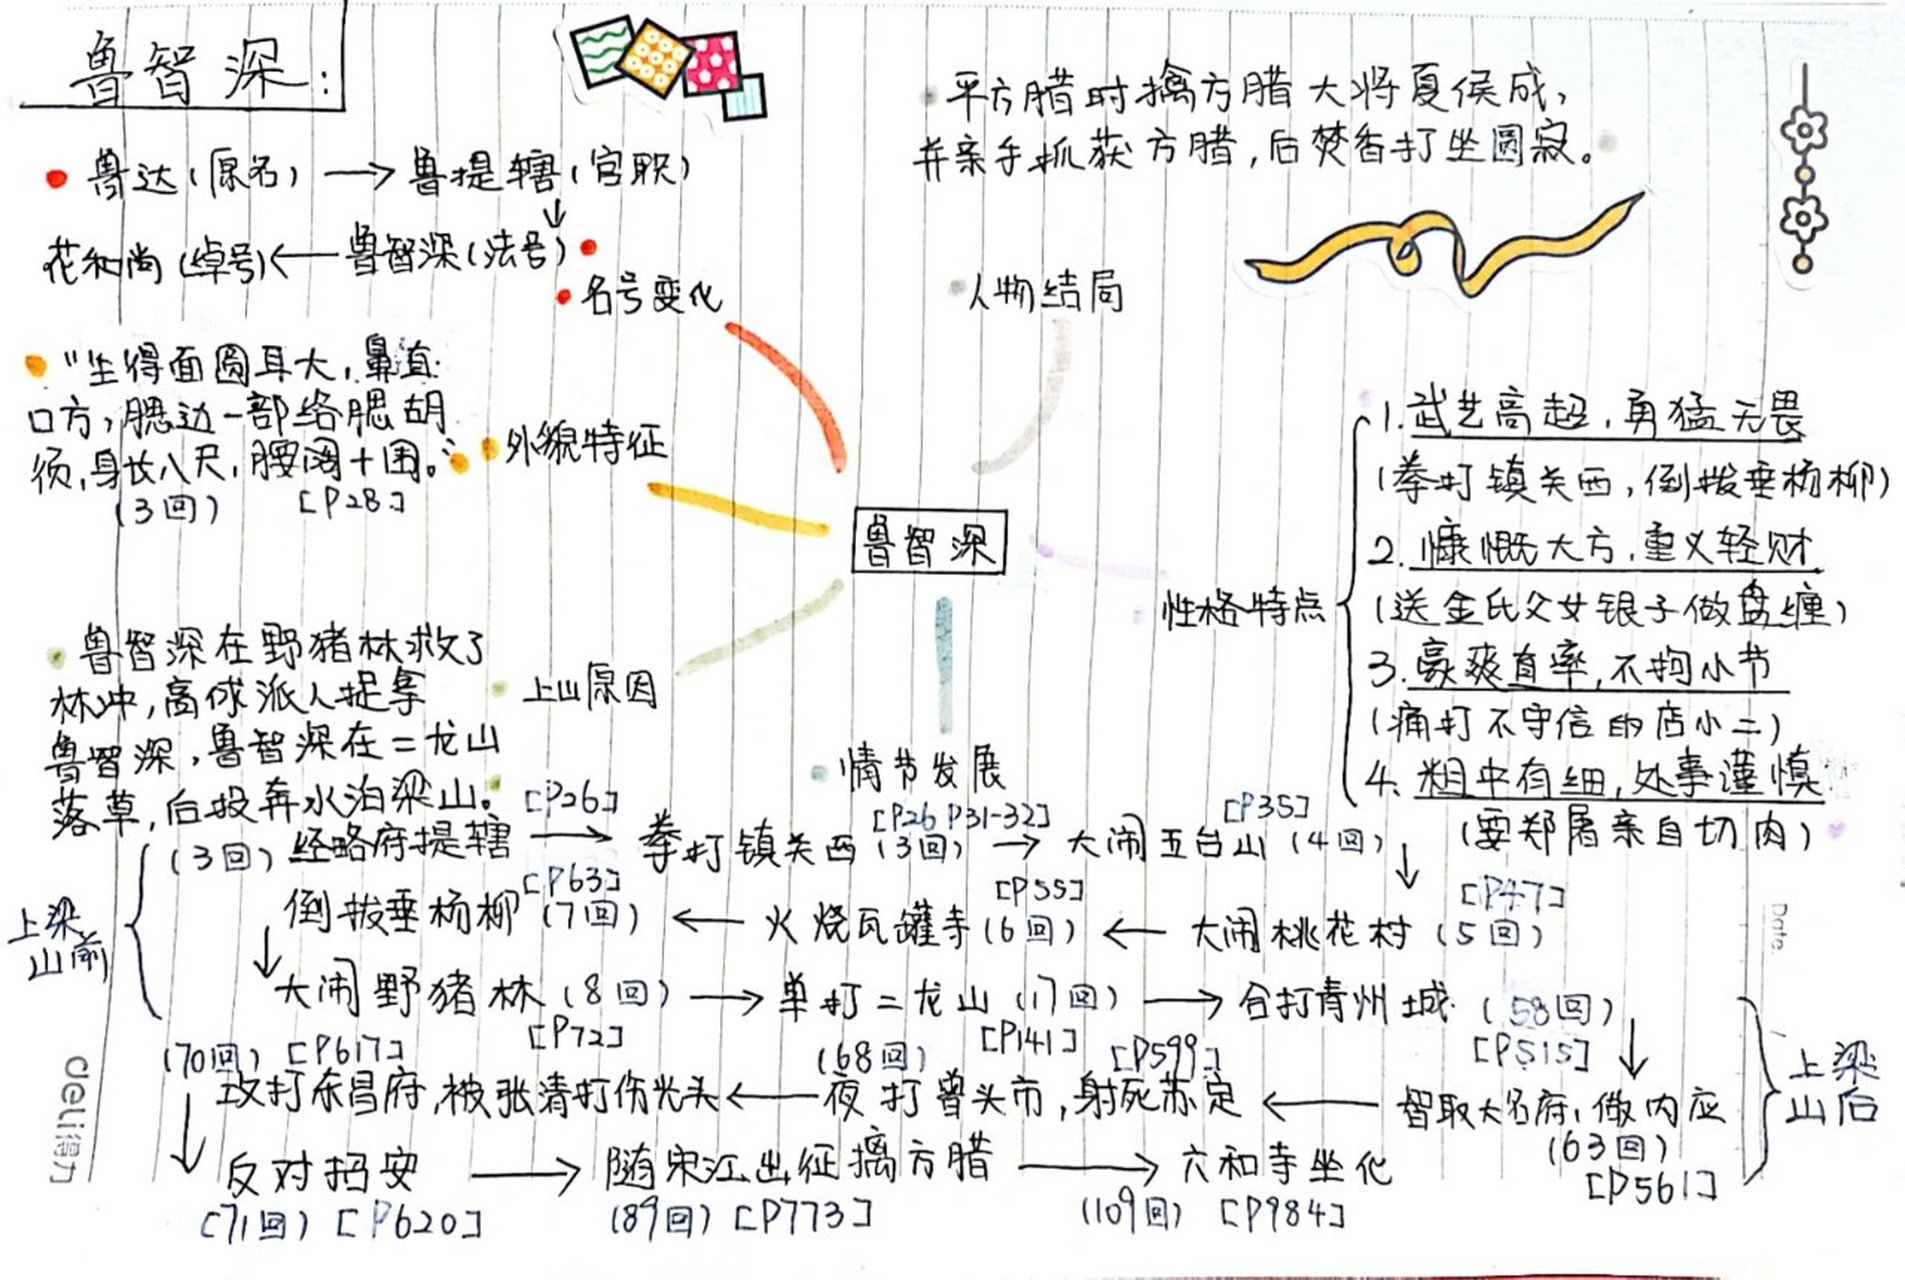 鲁智深:
鲁达(原名)→鲁提辖(官职)
↓
花和尚(绰号)←鲁智深(法号)
名号变化
平方腊时擒方腊大将夏侯成,
并亲手抓获方腊,后焚香打坐圆寂。
人物结局
"生得面圆耳大,鼻直
口方,腮边一部络腮胡
须,身长八尺,腰阔十围。"
(3回) [P28]
外貌特征
鲁智深
性格特点
1.武艺高超,勇猛无畏
(拳打镇关西,倒拔垂杨柳)
2.慷慨大方,重义轻财
(送金氏父女银子做盘缠)
3.豪爽直率,不拘小节
(痛打不守信的店小二)
4.粗中有细,处事谨慎
(要郑屠亲自切肉)
鲁智深在野猪林救了
林冲,高俅派人捉拿
鲁智深,鲁智深在二龙山
落草,后投奔水泊梁山。
上山原因
情节发展
上梁
山前
[P26] [P26 P31-32] [P35]
(3回)经略府提辖→拳打镇关西(3回)→大闹五台山(4回)↓
[P63] [P55] [P47]
倒拔垂杨柳(7回)←火烧瓦罐寺(6回)←大闹桃花村(5回)
↓大闹野猪林(8回)→单打二龙山(17回)→合打青州城(58回)↓
[P72] [P141] [P515]
上梁
山后
(70回) [P617] (68回) [P599]
攻打东昌府,被张清打伤光头←夜打曾头市,射死苏定←智取大名府,做内应
(63回)
[P561]
↓反对招安→随宋江出征擒方腊→六和寺坐化
(71回) [P620] (89回) [P773] (109回) [P984]
deli得力
Date